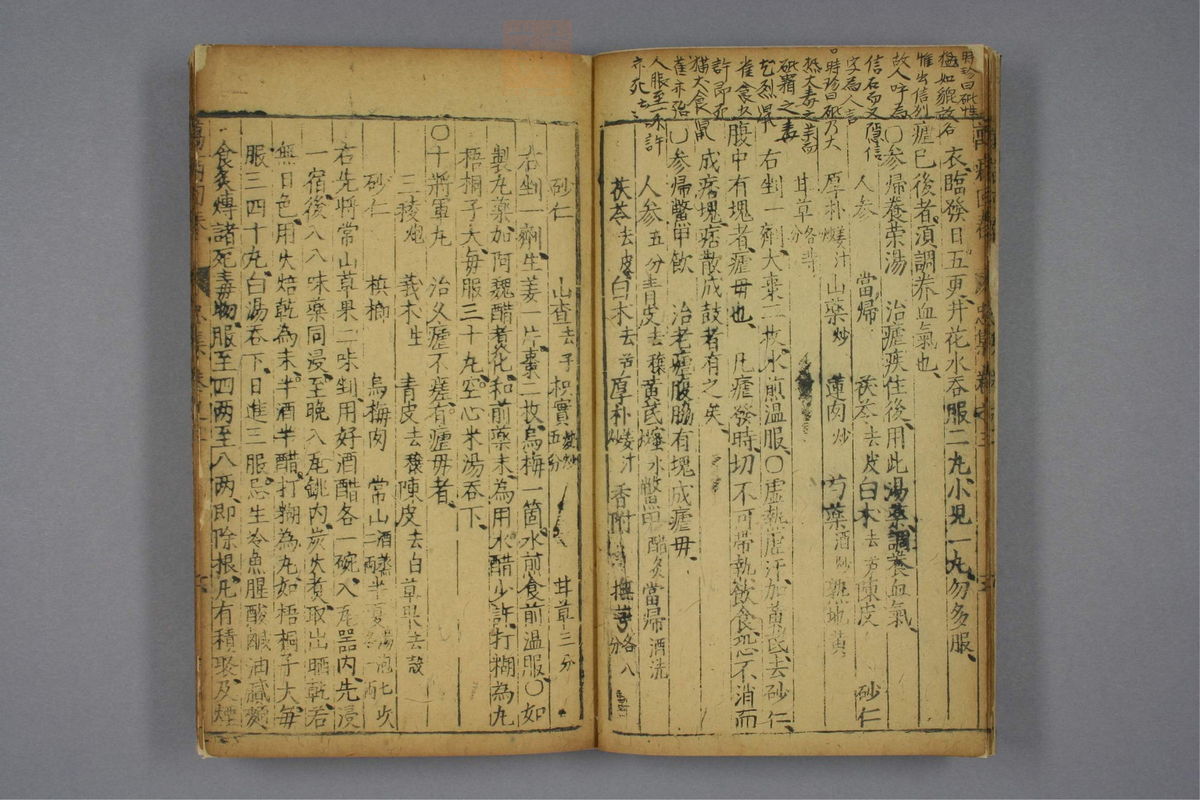 時珍曰砒性
猛如貔故名
惟出信州
故人呼為
信石而又隱信
字為人言
時珍曰砒乃大
熱大毒之藥而
砒霜之毒
尤烈鼠
雀食少
許即死
猫犬食鼠
雀亦殆
人服至一錢許
亦死
衣臨發日五更井花水吞服二九小兒一九勿多服
瘧已後者須調养血氣也
〇參歸養荣湯　治瘧疾住後用此湯藥調養血氣
人參　當歸　茯苓去皮白术去芦陳皮　砂仁
厚朴姜汁炒山藥炒　蓮肉炒　芍藥酒炒熟地黃
甘草各等分
右剉一劑大棗二枚水煎温服〇虛熱虛汗加黃芪去砂仁
腹中有塊者瘧毋也　凡瘧發時切不可帶熱飲食恐不消而
成痞塊痞散成鼓者有之矣
〇參歸鱉甲飲　治老瘧腹脇有塊成瘧毋
人參五分青皮去穰黃芪蜜水鱉甲醋炙當歸酒洗
茯苓去皮白术去芦厚朴姜汁香附　撫芎各八分
砂仁　山查去子枳實麩炒五分　甘草三分
右剉一劑生姜一片棗二枚烏梅一箇水煎食前温服〇如
製丸藥加阿魏醋煮化和前藥末為用水醋少許打糊為丸
梧桐子大每服三十丸空心米湯吞下
〇十將軍丸　治久瘧不瘥有瘧毋者
三稜炮　莪术生　青皮去穰陳皮去白草果去殼
砂仁　梹榔　烏梅肉　常山酒蒸二兩半夏湯泡七次
右先將常山草果二味剉用好酒醋各一碗入瓦器内先浸
一宿後八八味藥同浸至晚入瓦銚内炭火煮取出晒乾若
無日色用火焙乾為末半酒半醋打糊為丸如梧桐子大每
服三四十丸白湯吞下日進三服忌生冷魚腥酸鹹油膩麪
食炙煿諸死毒物服至四兩至八兩即除根凡有積聚及煙